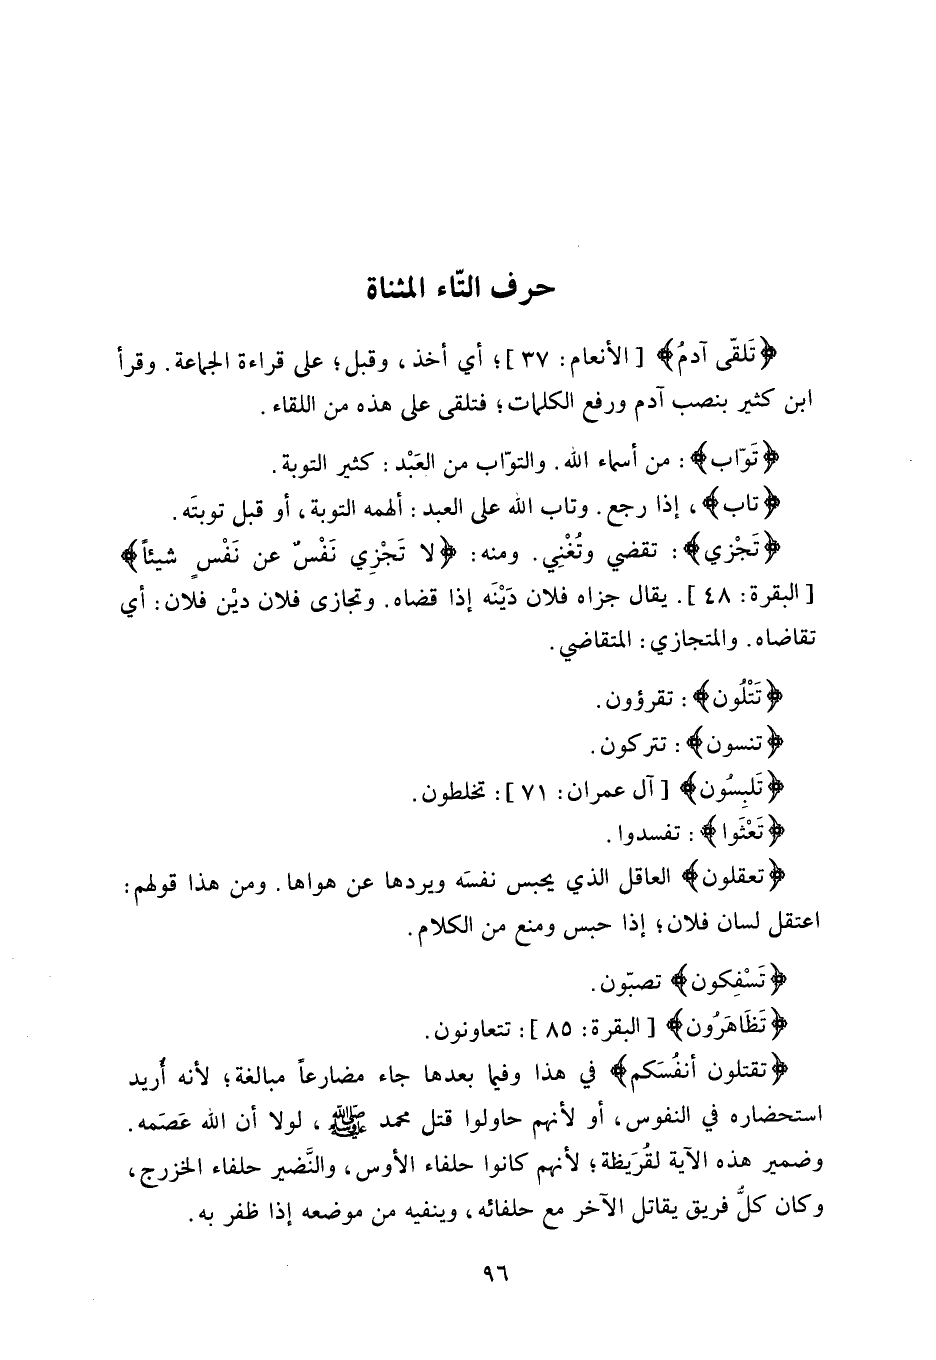 حرف التّاء المثناة
﴿تَلقّى آدمُ﴾ [الأنعام: ٣٧]؛ أي أخذ، وقبل؛ على قراءة الجماعة. وقرأ
ابن كثير بنصب آدم ورفع الكلمات؛ فتلقى على هذه من اللقاء.
﴿تَوّاب﴾: من أسماء الله. والتوّاب من العَبْد: كثير التوبة.
﴿تاب﴾، إذا رجع. وتاب الله على العبد: ألهمه التوبة، أو قبل توبتَه.
﴿تَجْزي﴾: تقضي وتُغْنِي. ومنه: ﴿لا تَجْزِي نَفْسٌ عن نَفْسٍ شيئاً﴾
[البقرة: ٤٨]. يقال جزاه فلان دَيْنَه إذا قضاه. وتجازى فلان ديْن فلان: أي
تقاضاه. والمتجازي: المتقاضي.
﴿تَتْلُون﴾: تقرؤون.
﴿تنسون﴾: تتركون.
﴿تَلبِسُون﴾ [آل عمران: ٧١]: تخلطون.
﴿تَعْثَوا﴾: تفسدوا.
﴿تعقلون﴾ العاقل الذي يحبس نفسَه ويردها عن هواها. ومن هذا قولهم:
اعتقل لسان فلان؛ إذا حبس ومنع من الكلام.
﴿تَسْفِكون﴾ تصبّون.
﴿تَظَاهَرُون﴾ [البقرة: ٨٥]: تتعاونون.
﴿تقتلون أنفُسَكم﴾ في هذا وفيما بعدها جاء مضارعاً مبالغة؛ لأنه أُريد
استحضاره في النفوس، أو لأنهم حاولوا قتل محمد ﷺ، لولا أن الله عَصَمه.
وضمير هذه الآية لقُرَيظة؛ لأنهم كانوا حلفاء الأوس، والنَّضير حلفاء الخزرج،
وكان كلُّ فريق يقاتل الآخر مع حلفائه، وينفيه من موضعه إذا ظفر به.
٩٦